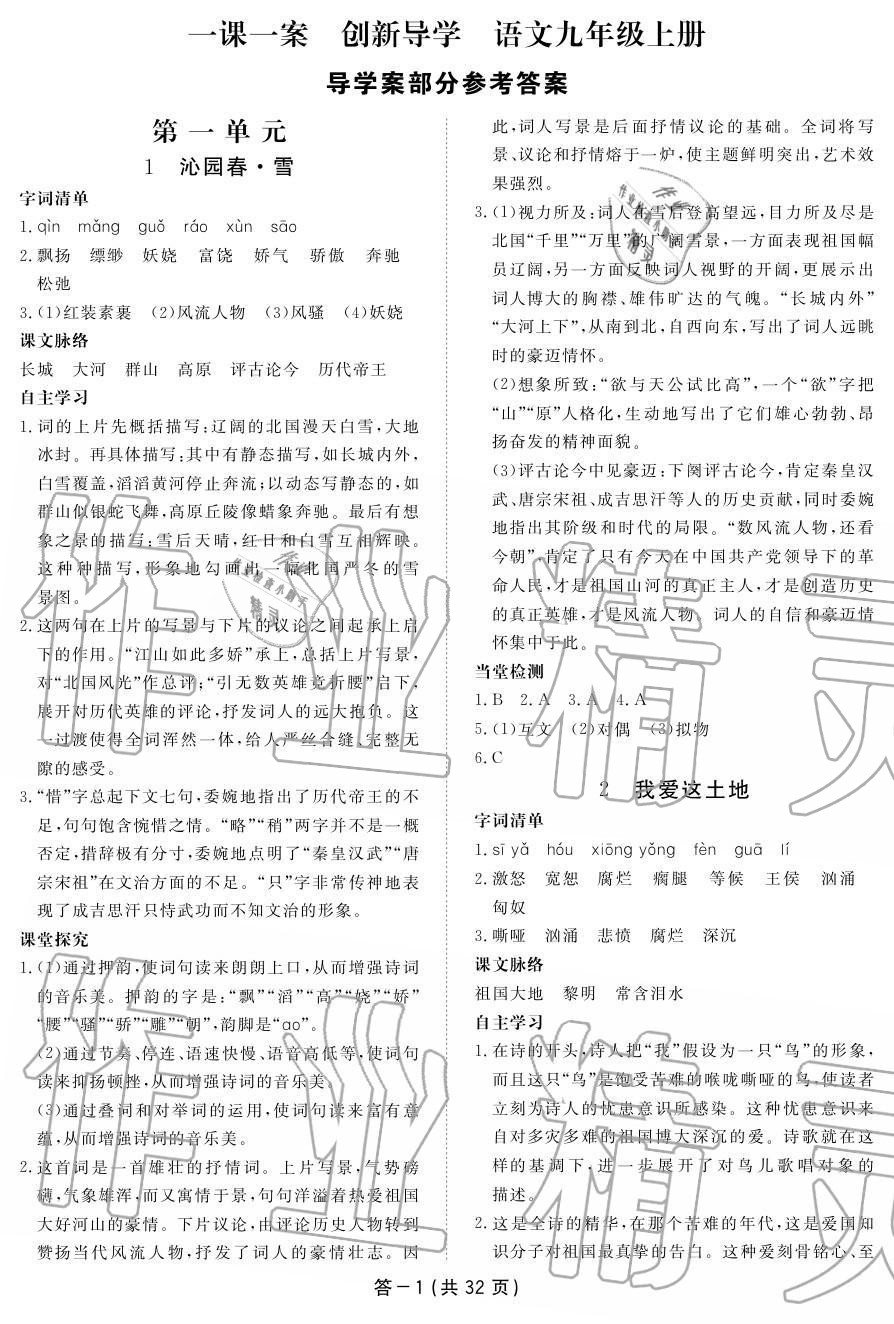 一课一案　创新导学　语文九年级上册
导学案部分参考答案
第一单元
1　沁园春·雪
字词清单
1.qìn　mǎng　guǒ　ráo　xùn　sāo
2.飘扬　缥缈　妖娆　富饶　娇气　骄傲　奔驰
松弛
3.(1)红装素裹　(2)风流人物　(3)风骚　(4)妖娆
课文脉络
长城　大河　群山　高原　评古论今　历代帝王
自主学习
1.词的上片先概括描写:辽阔的北国漫天白雪,大地
冰封。再具体描写:其中有静态描写,如长城内外,
白雪覆盖,滔滔黄河停止奔流;以动态写静态的,如
群山似银蛇飞舞,高原丘陵像蜡象奔驰。最后有想
象之景的描写:雪后天晴,红日和白雪互相辉映。
这种种描写,形象地勾画出一幅北国严冬的雪
景图。
2.这两句在上片的写景与下片的议论之间起承上启
下的作用。“江山如此多娇”承上,总括上片写景,
对“北国风光”作总评;“引无数英雄竞折腰”启下,
展开对历代英雄的评论,抒发词人的远大抱负。这
一过渡使得全词浑然一体,给人严丝合缝、完整无
隙的感受。
3.“惜”字总起下文七句,委婉地指出了历代帝王的不
足,句句饱含惋惜之情。“略”“稍”两字并不是一概
否定,措辞极有分寸,委婉地点明了“秦皇汉武”“唐
宗宋祖”在文治方面的不足。“只”字非常传神地表
现了成吉思汗只恃武功而不知文治的形象。
课堂探究
1.(1)通过押韵,使词句读来朗朗上口,从而增强诗词
的音乐美。押韵的字是:“飘”“滔”“高”“娆”“娇”
“腰”“骚”“骄”“雕”“朝”,韵脚是“ao”。
(2)通过节奏、停连、语速快慢、语音高低等,使词句
读来抑扬顿挫,从而增强诗词的音乐美。
(3)通过叠词和对举词的运用,使词句读来富有意
蕴,从而增强诗词的音乐美。
2.这首词是一首雄壮的抒情词。上片写景,气势磅
礴,气象雄浑,而又寓情于景,句句洋溢着热爱祖国
大好河山的豪情。下片议论,由评论历史人物转到
赞扬当代风流人物,抒发了词人的豪情壮志。因
此,词人写景是后面抒情议论的基础。全词将写
景、议论和抒情熔于一炉,使主题鲜明突出,艺术效
果强烈。
3.(1)视力所及:词人在雪后登高望远,目力所及尽是
北国“千里”“万里”的广阔雪景,一方面表现祖国幅
员辽阔,另一方面反映词人视野的开阔,更展示出
词人博大的胸襟、雄伟旷达的气魄。“长城内外”
“大河上下”,从南到北,自西向东,写出了词人远眺
时的豪迈情怀。
(2)想象所致:“欲与天公试比高”,一个“欲”字把
“山”“原”人格化,生动地写出了它们雄心勃勃、昂
扬奋发的精神面貌。
(3)评古论今中见豪迈:下阕评古论今,肯定秦皇汉
武、唐宗宋祖、成吉思汗等人的历史贡献,同时委婉
地指出其阶级和时代的局限。“数风流人物,还看
今朝”,肯定了只有今天在中国共产党领导下的革
命人民,才是祖国山河的真正主人,才是创造历史
的真正英雄,才是风流人物。词人的自信和豪迈情
怀集中于此。
当堂检测
1.B　2.A　3.A　4.A
5.(1)互文　(2)对偶　(3)拟物
6.C
2　我爱这土地
字词清单
1.sī yǎ　hóu　xiōng yǒng　fèn　guā　lí
2.激怒　宽恕　腐烂　瘸腿　等候　王侯　汹涌
匈奴
3.嘶哑　汹涌　悲愤　腐烂　深沉
课文脉络
祖国大地　黎明　常含泪水
自主学习
1.在诗的开头,诗人把“我”假设为一只“鸟”的形象,
而且这只“鸟”是饱受苦难的喉咙嘶哑的鸟,使读者
立刻为诗人的忧患意识所感染。这种忧患意识来
自对多灾多难的祖国博大深沉的爱。诗歌就在这
样的基调下,进一步展开了对鸟儿歌唱对象的
描述。
2.这是全诗的精华,在那个苦难的年代,这是爱国知
识分子对祖国最真挚的告白。这种爱刻骨铭心、至
答－1(共 32 页)
作业精灵
作业精灵